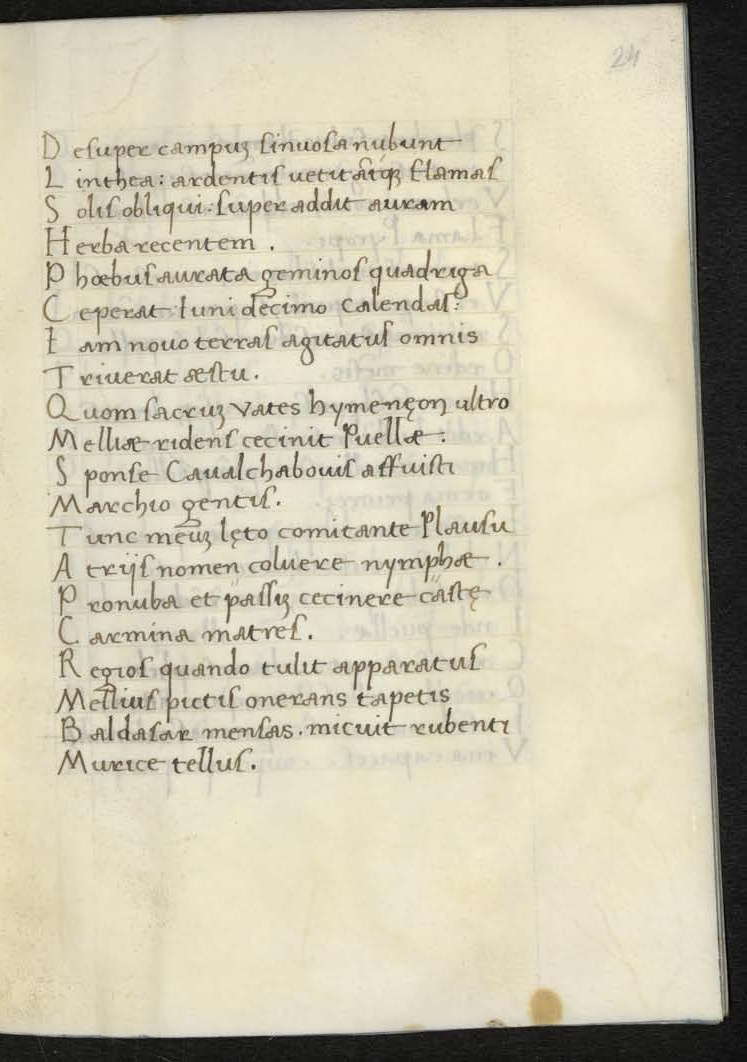 24
D esuper campuꝫ sinuosa nubunt
L inthea: ardentis uetitātqꝫ flamas
S olis obliqui: super addit auram
H erba recentem .
P hœbus aurata geminos quadriga
C eperat Iuni decimo calendas:
I am nouo terras agitatus omnis
T riuerat æstu .
Q uom sacruꝫ vates hymenęon ultro
M elliæ ridens cecinit Puellæ :
S ponse Caualchabouis affuisti
M archio gentis .
T unc meuꝫ lęto comitante Plausu
A trijs nomen coluere nymphæ .
P ronuba et passiꝫ cecinere castę
C armina matres .
R egios quando tulit apparatus
M ellius pictis onerans tapetis
B aldasar mensas . micuit rubenti
M urice tellus .